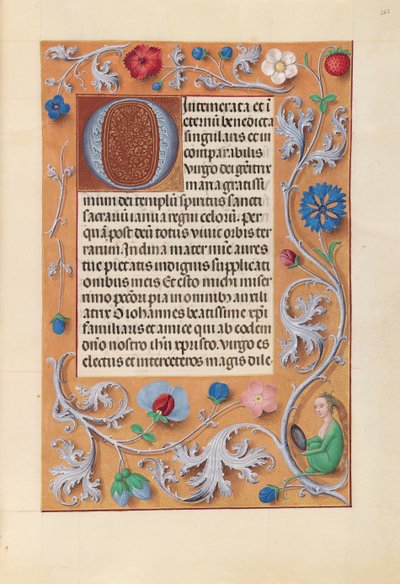 263
O Intemerata et i
eternũ benedicta
singularis et in
comparabilis
virgo dei genitrix
maria gratissi
mum dei templũ spiritus sancti
sacrariũ ianua regni celorũ. per
quã post deũ totus viuit orbis ter
rarum Inclina mater mie aures
tue pietatis indignis supplicati
onibus meis Et esto michi miser
rimo peccori pia in omnibꝰ auxili
atrix O iohannes beatissime xp̃i
familiaris et amice qui ab eodem
dño nostro ihũ xpristo. virgo es
electus et inter ceteros magis dile